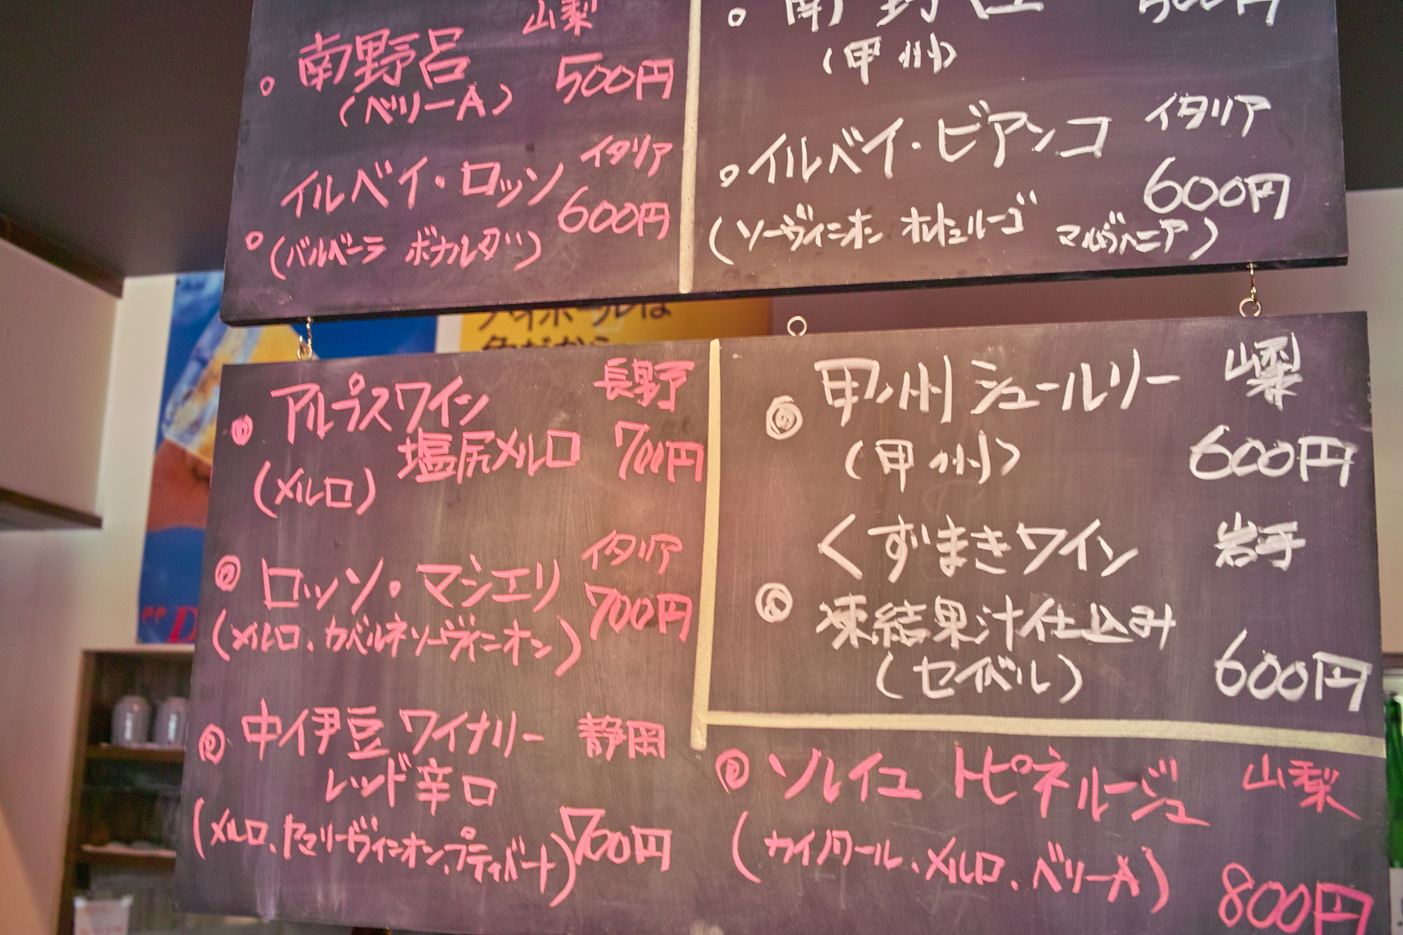 山梨
南野呂
500円
(ベリーA)
イタリア
イルベイ・ロッソ
600円
(バルベーラ ボナルダ)
南野呂
500円
(甲州)
イタリア
イルベイ・ビアンコ
600円
(ソーヴィニオン オルトュルーゴ
ハイボールは
長野
アルプスワイン
塩尻メルロ 700円
(メルロ)
イタリア
ロッソ・マシエリ
700円
(メルロ、カベルネソーヴィニオン)
中伊豆ワイナリー 静岡
レッド辛口
(メルロ、ヤマソーヴィニオン、プティベート)700円
山梨
甲州シュールリー
(甲州) 600円
くずまきワイン 岩手
凍結果汁仕込み
(セイベル) 600円
ソレイユ トピネルージュ 山梨
(カイノワール、メルロ、ベリーA)
800円